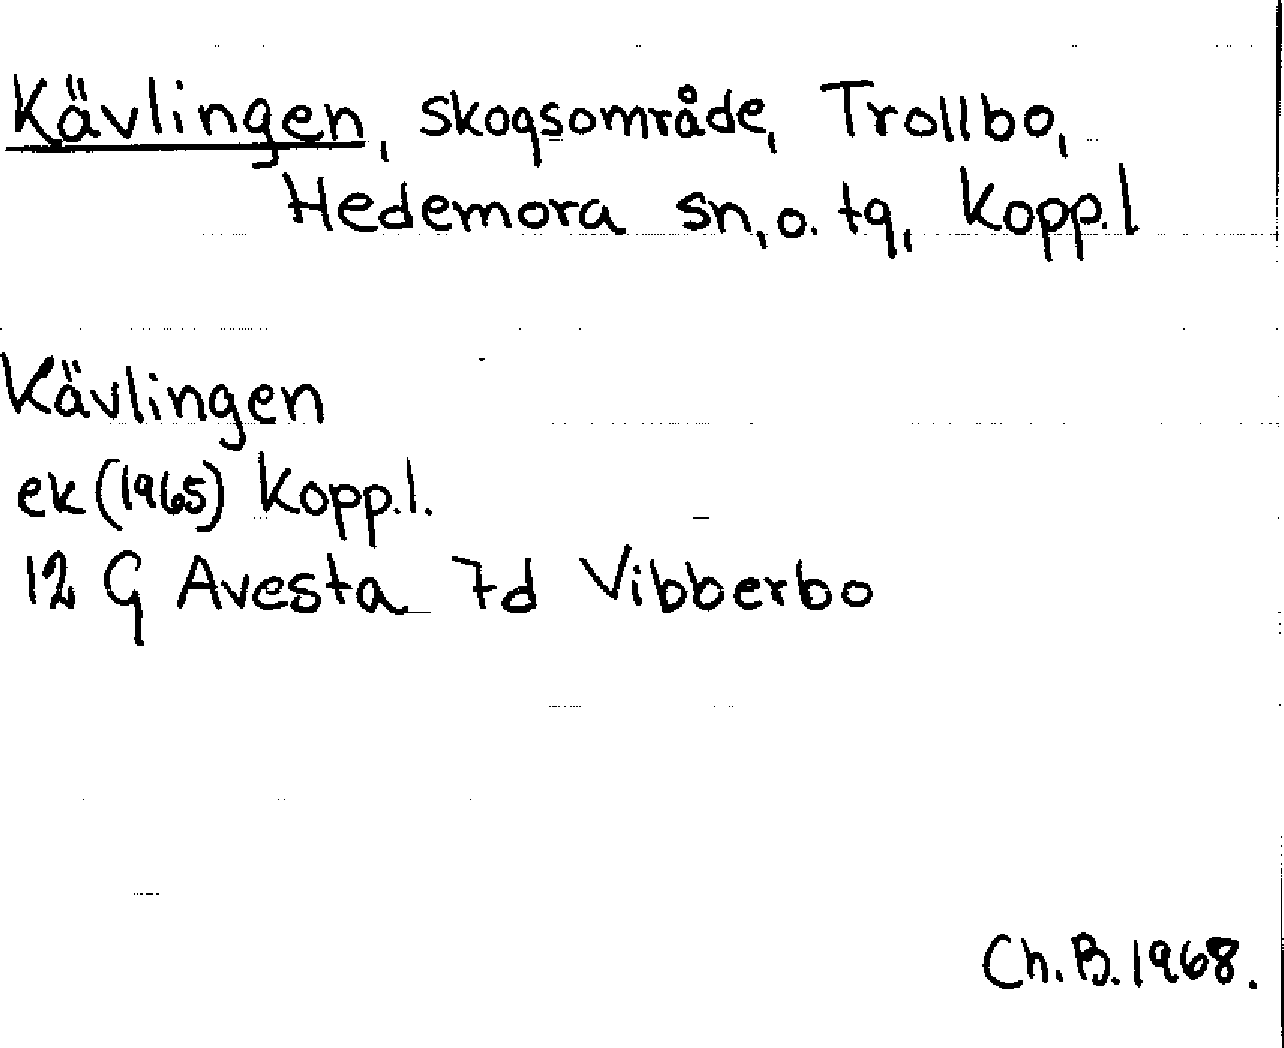 Kävlingen, skogsområde, Trollbo,
Hedemora sn, o. tg, Kopp.l
Kävlingen
ek (1965) Kopp.l.
12 G Avesta 7d Vibberbo
Ch. B. 1968.